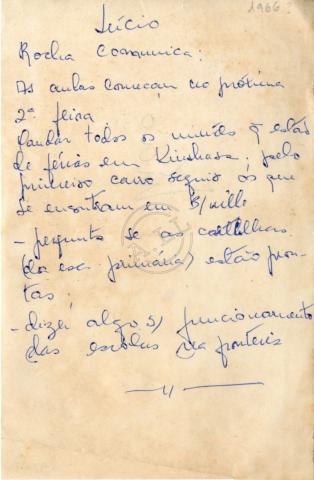 1966?
Lúcio
Rocha Comunica:
As aulas começam na próxima
2ª feira
Mandar todos os miúdos q̃ estão
de férias em Kinshasa; pelo
primeiro carro seguir os que
se encontram em B/ville
- pergunta se as cartilhas
(da esc. primária) estão pron-
tas;
- dizer algo s/ funcionamento
das escolas na fronteira
—— 11 ——